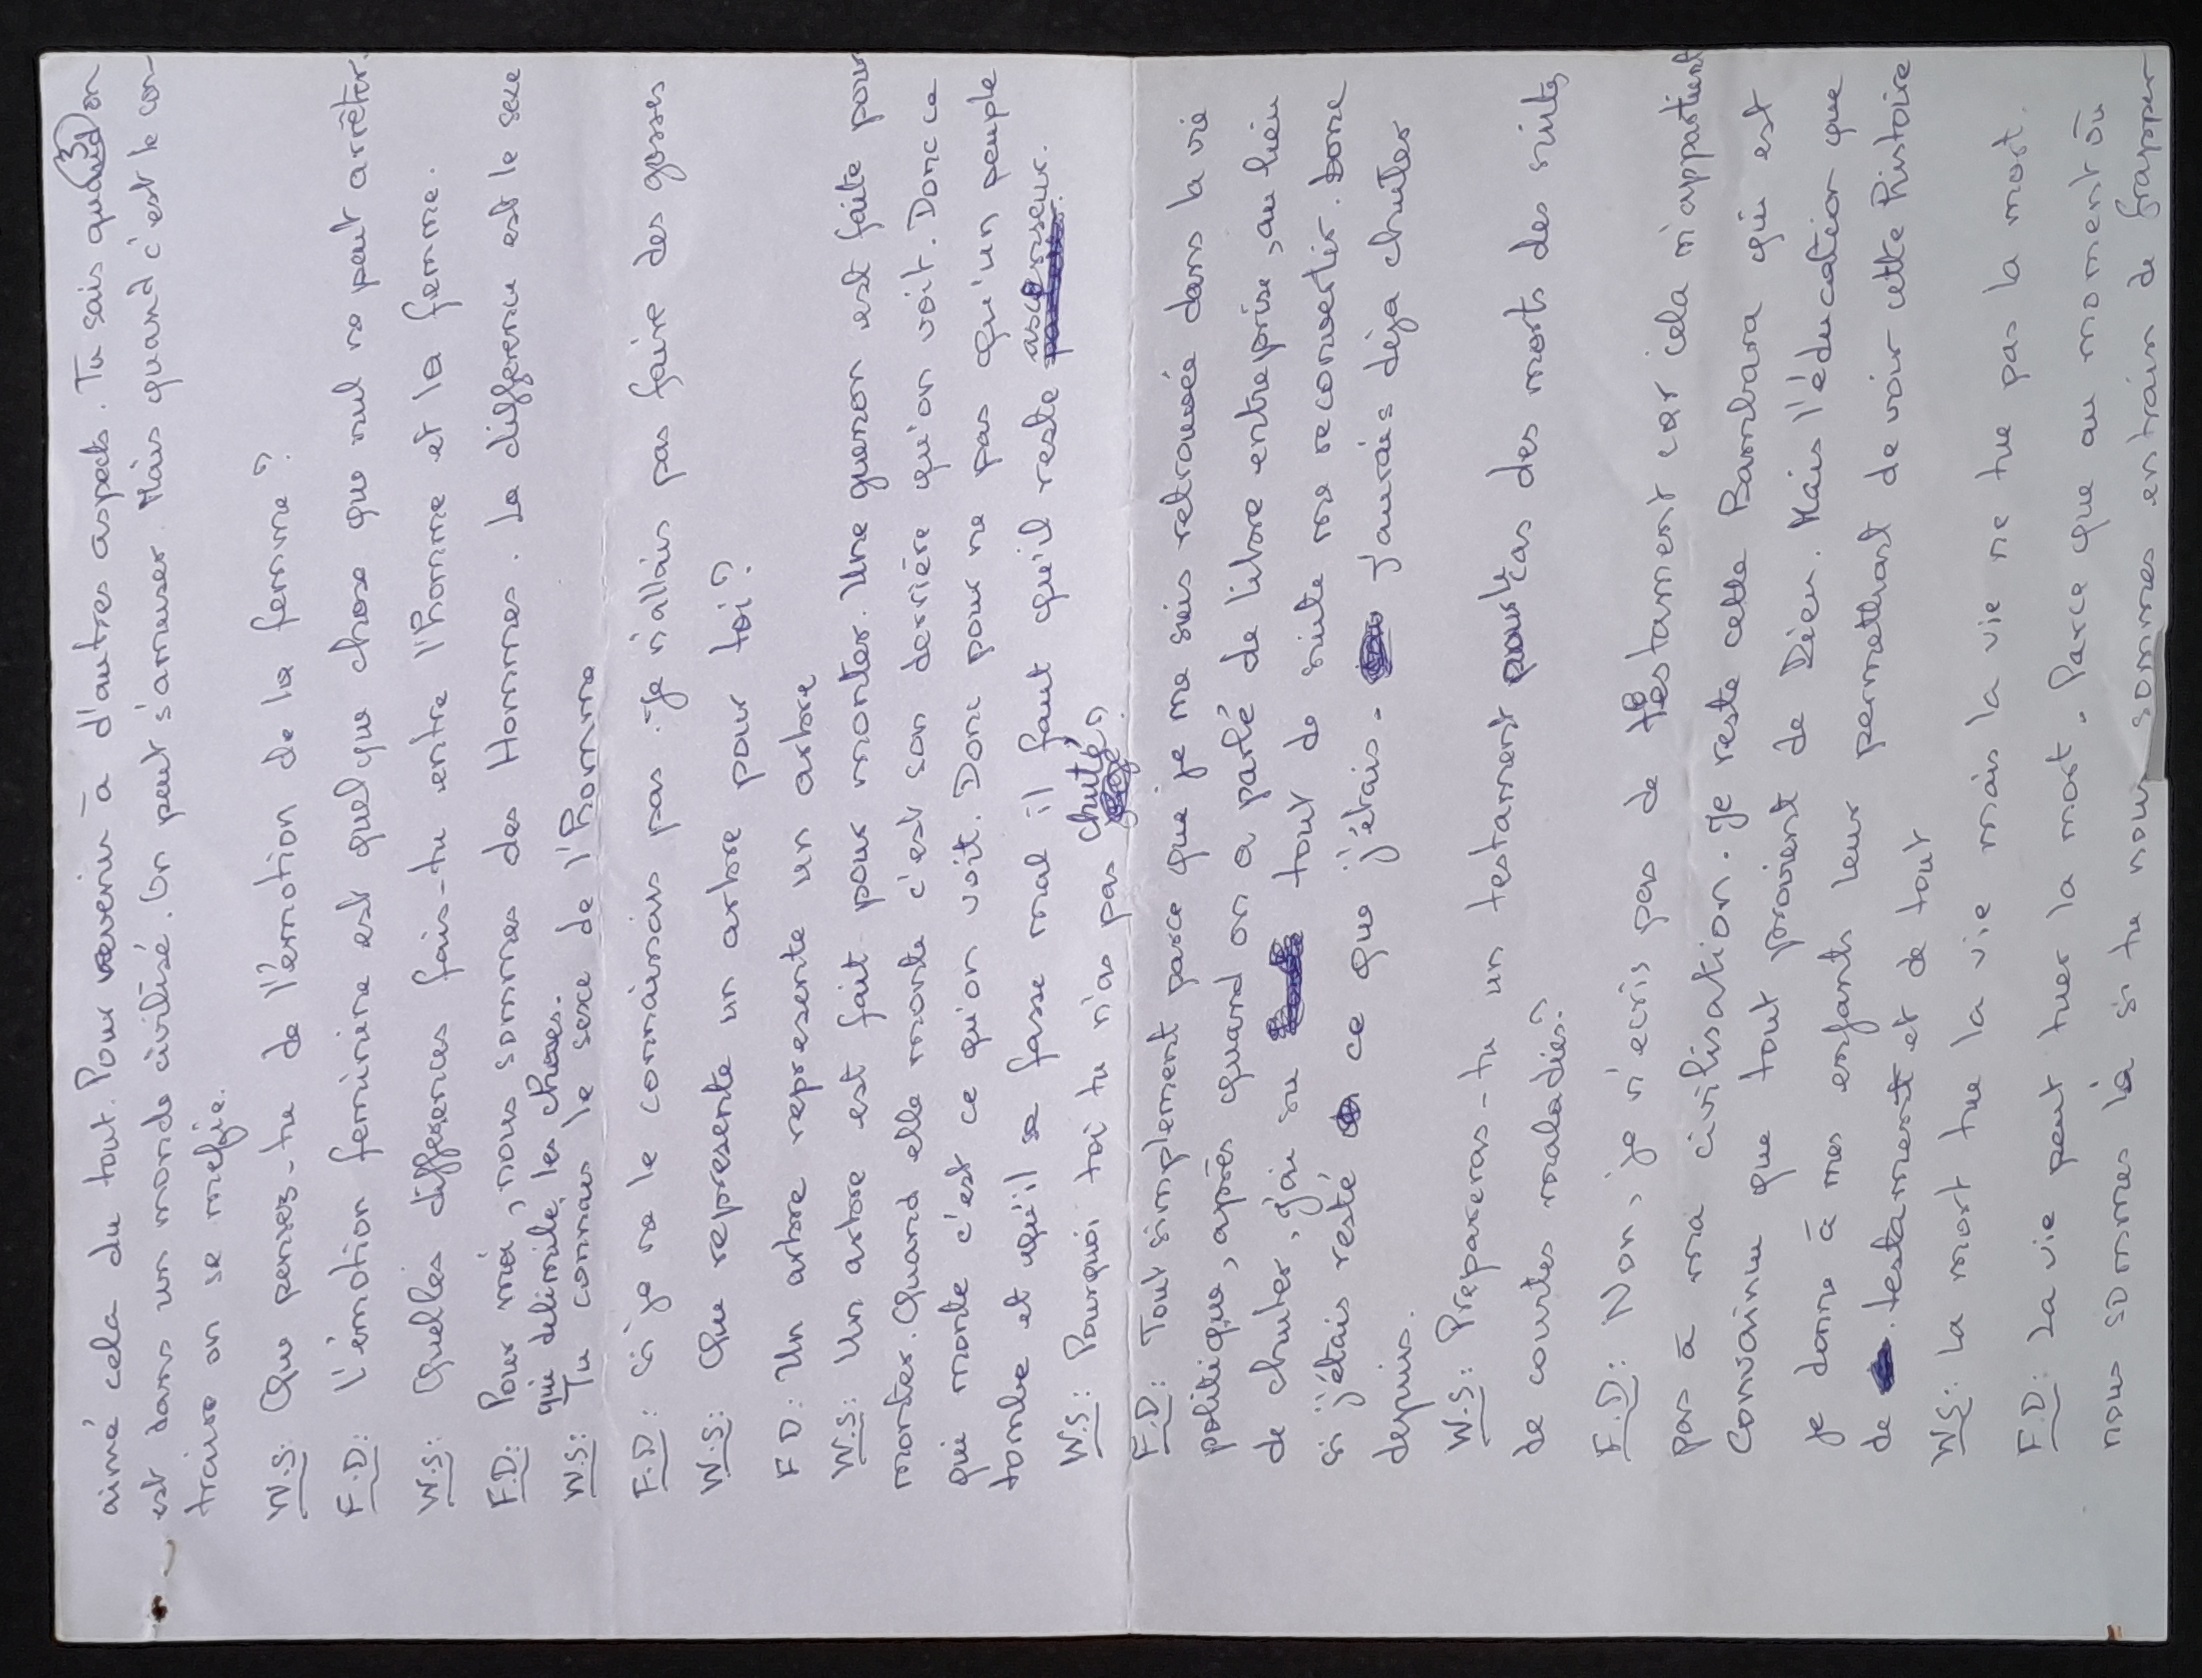 3
aimé cela du tout. Pour revenir à d'autres aspects. Tu sais quand on
est dans un monde civilisé. On peut s'amuser. Mais quand c'est le con-
traire on se mefie.
W.S: Que penses-tu de l'émotion de la femme?
F.D: l'émotion feminine est quelque chose que nul ne peut arrêter.
W.S: Quelles differences fais-tu entre l'Homme et la femme.
F.D: Pour moi, nous sommes des Hommes. La difference est le sexe
qui delimite les choses.
W.S: Tu connais le sexe de l'homme
F.D: Si je ne le connaissais pas. Je n'allais pas faire des gosses
W.S: Que represente un arbre pour toi?
F D: Un arbre represente un arbre
W.S: Un arbre est fait pour monter. Une guenon est faite pour
monter. Quand elle monte c'est son derrière qu'on voit. Donc ce
qui monte c'est ce qu'on voit. Donc pour ne pas qu'un peuple
tombe et qu'il se fasse mal il faut qu'il reste ascenseur.
W.S: Pourquoi toi tu n'as pas chuté?
F.D: Tout simplement parce que je me suis retrouvée dans la vie
politique, après quand on a parlé de libre entreprise, au lieu
de chuter, j'ai su tout de suite me reconvertir. Donc
si j'étais resté ce que j'étais. J'aurais déja chuter
depuis.
W.S: Prepareras-tu un testament pour le cas des morts des suites
de courtes maladies?
F.D: Non, je n'ecris pas de testament car cela n'appartient
pas à ma civilisation. Je reste cette Bambara qui est
Convaincu que tout provient de Dieu. Mais l'éducation que
je donne à mes enfants leur permettront de voir cette histoire
de testament et de tout
W.S: la mort tue la vie mais la vie ne tue pas la mort.
F.D: La vie peut tuer la mort. Parce que au moment où
nous sommes là si tu nous sommes entrain de frapper